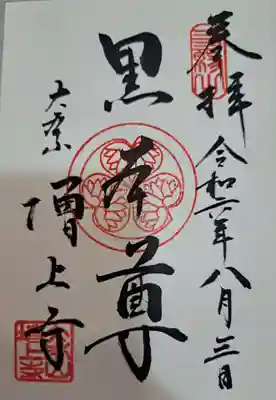 奉拝
令和六年八月三日
黒本尊
大本山
増上寺